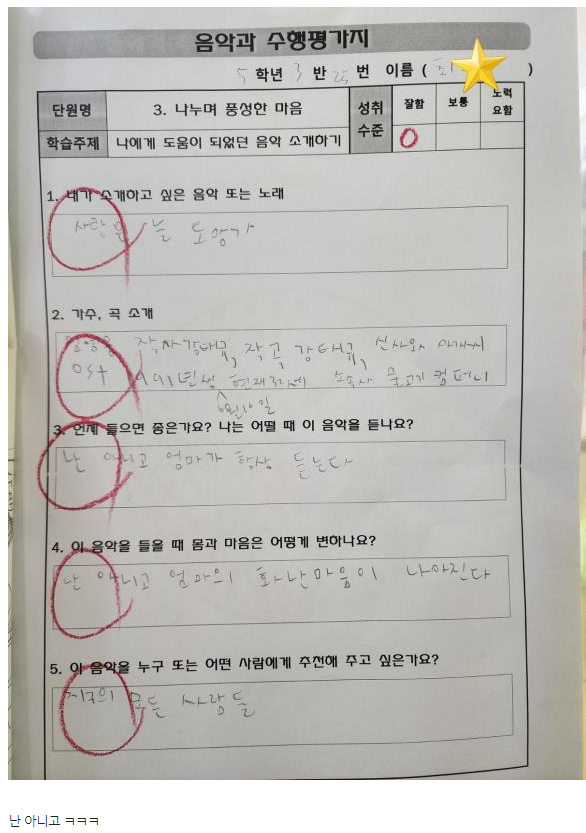 음악과 수행평가지
5 학년 3 반 번 이름 ( )
단원명 3. 나누며 풍성한 마음 성취수준 잘함 보통 노력요함
학습주제 나에게 도움이 되었던 음악 소개하기
1. 내가 소개하고 싶은 음악 또는 노래
사랑은 늘 도망가
2. 가수, 곡 소개
임영웅 작사강태규, 작곡 강태규, 신사와 아가씨
OST 1991년생 현재 소속사 물고기 컴퍼니
6월16일
3. 언제 들으면 좋은가요? 나는 어떨 때 이 음악을 듣나요?
난 아니고 엄마가 항상 듣는다
4. 이 음악을 들을 때 몸과 마음은 어떻게 변하나요?
난 아니고 엄마의 화난마음이 나아진다
5. 이 음악을 누구 또는 어떤 사람에게 추천해 주고 싶은가요?
지구의 모든 사람들
난 아니고 ㅋㅋㅋ